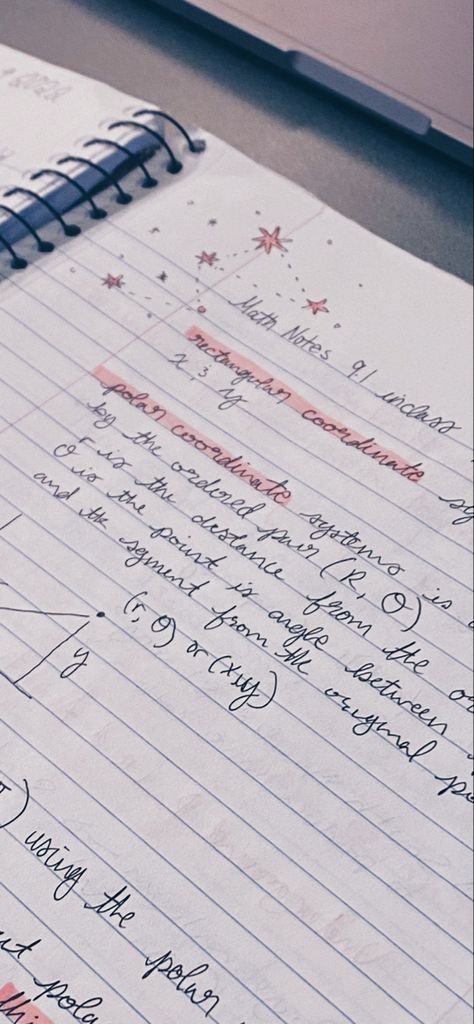 2022
Math Notes 9.1 inclass
rectangular coordinate sy
x & y
polar coordinate systems is
by the ordered pair (R, θ)
r is the distance from the or
θ is the point is angle between
and the segment from the original po
(r, θ) or (x,y)
y
π) using the polar
ut pola
thi